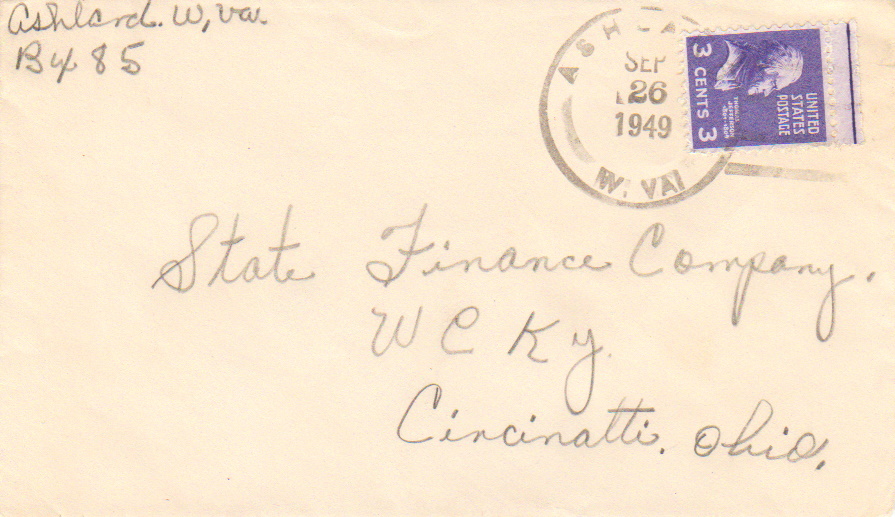 Ashland. W, Va.
Bx 85
ASHLA
SEP
26
1949
W. VA
3 CENTS 3
THOMAS
JEFFERSON
1801-1809
UNITED
STATES
POSTAGE
State Finance Company.
W C K y.
Cincinatti. Ohio.